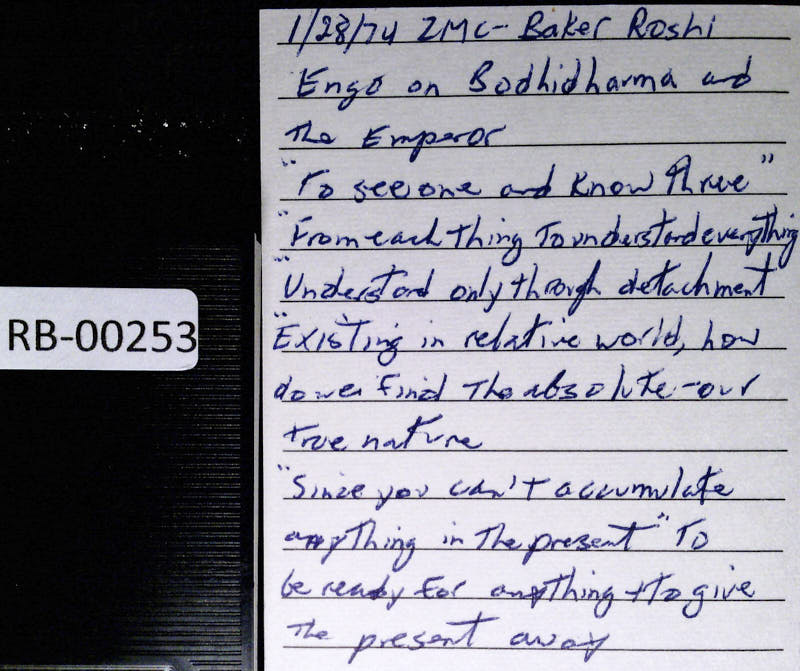 1/28/74 ZMC - Baker Roshi
Engo on Bodhidharma and
the Emperor
"To see one and know three"
"From each thing to understand everything
"Understand only through detachment
"Existing in relative world, how
do we find the absolute - our
true nature
"Since you can't accumulate
anything in the present" To
be ready for anything + to give
the present away
RB-00253